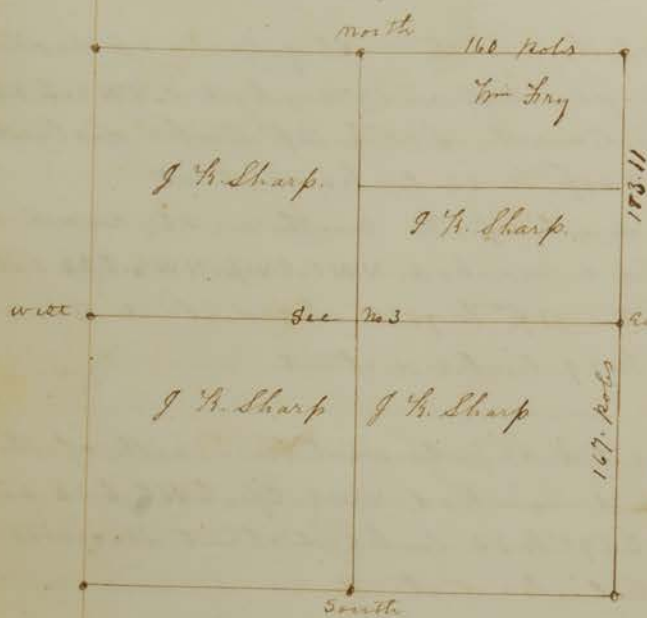 north
160 Pohs
Wm Fry
J K. Sharp.
J K. Sharp.
183.11
west
Sec No 3
Ea
J K. Sharp
J K. Sharp
167. pohs
South